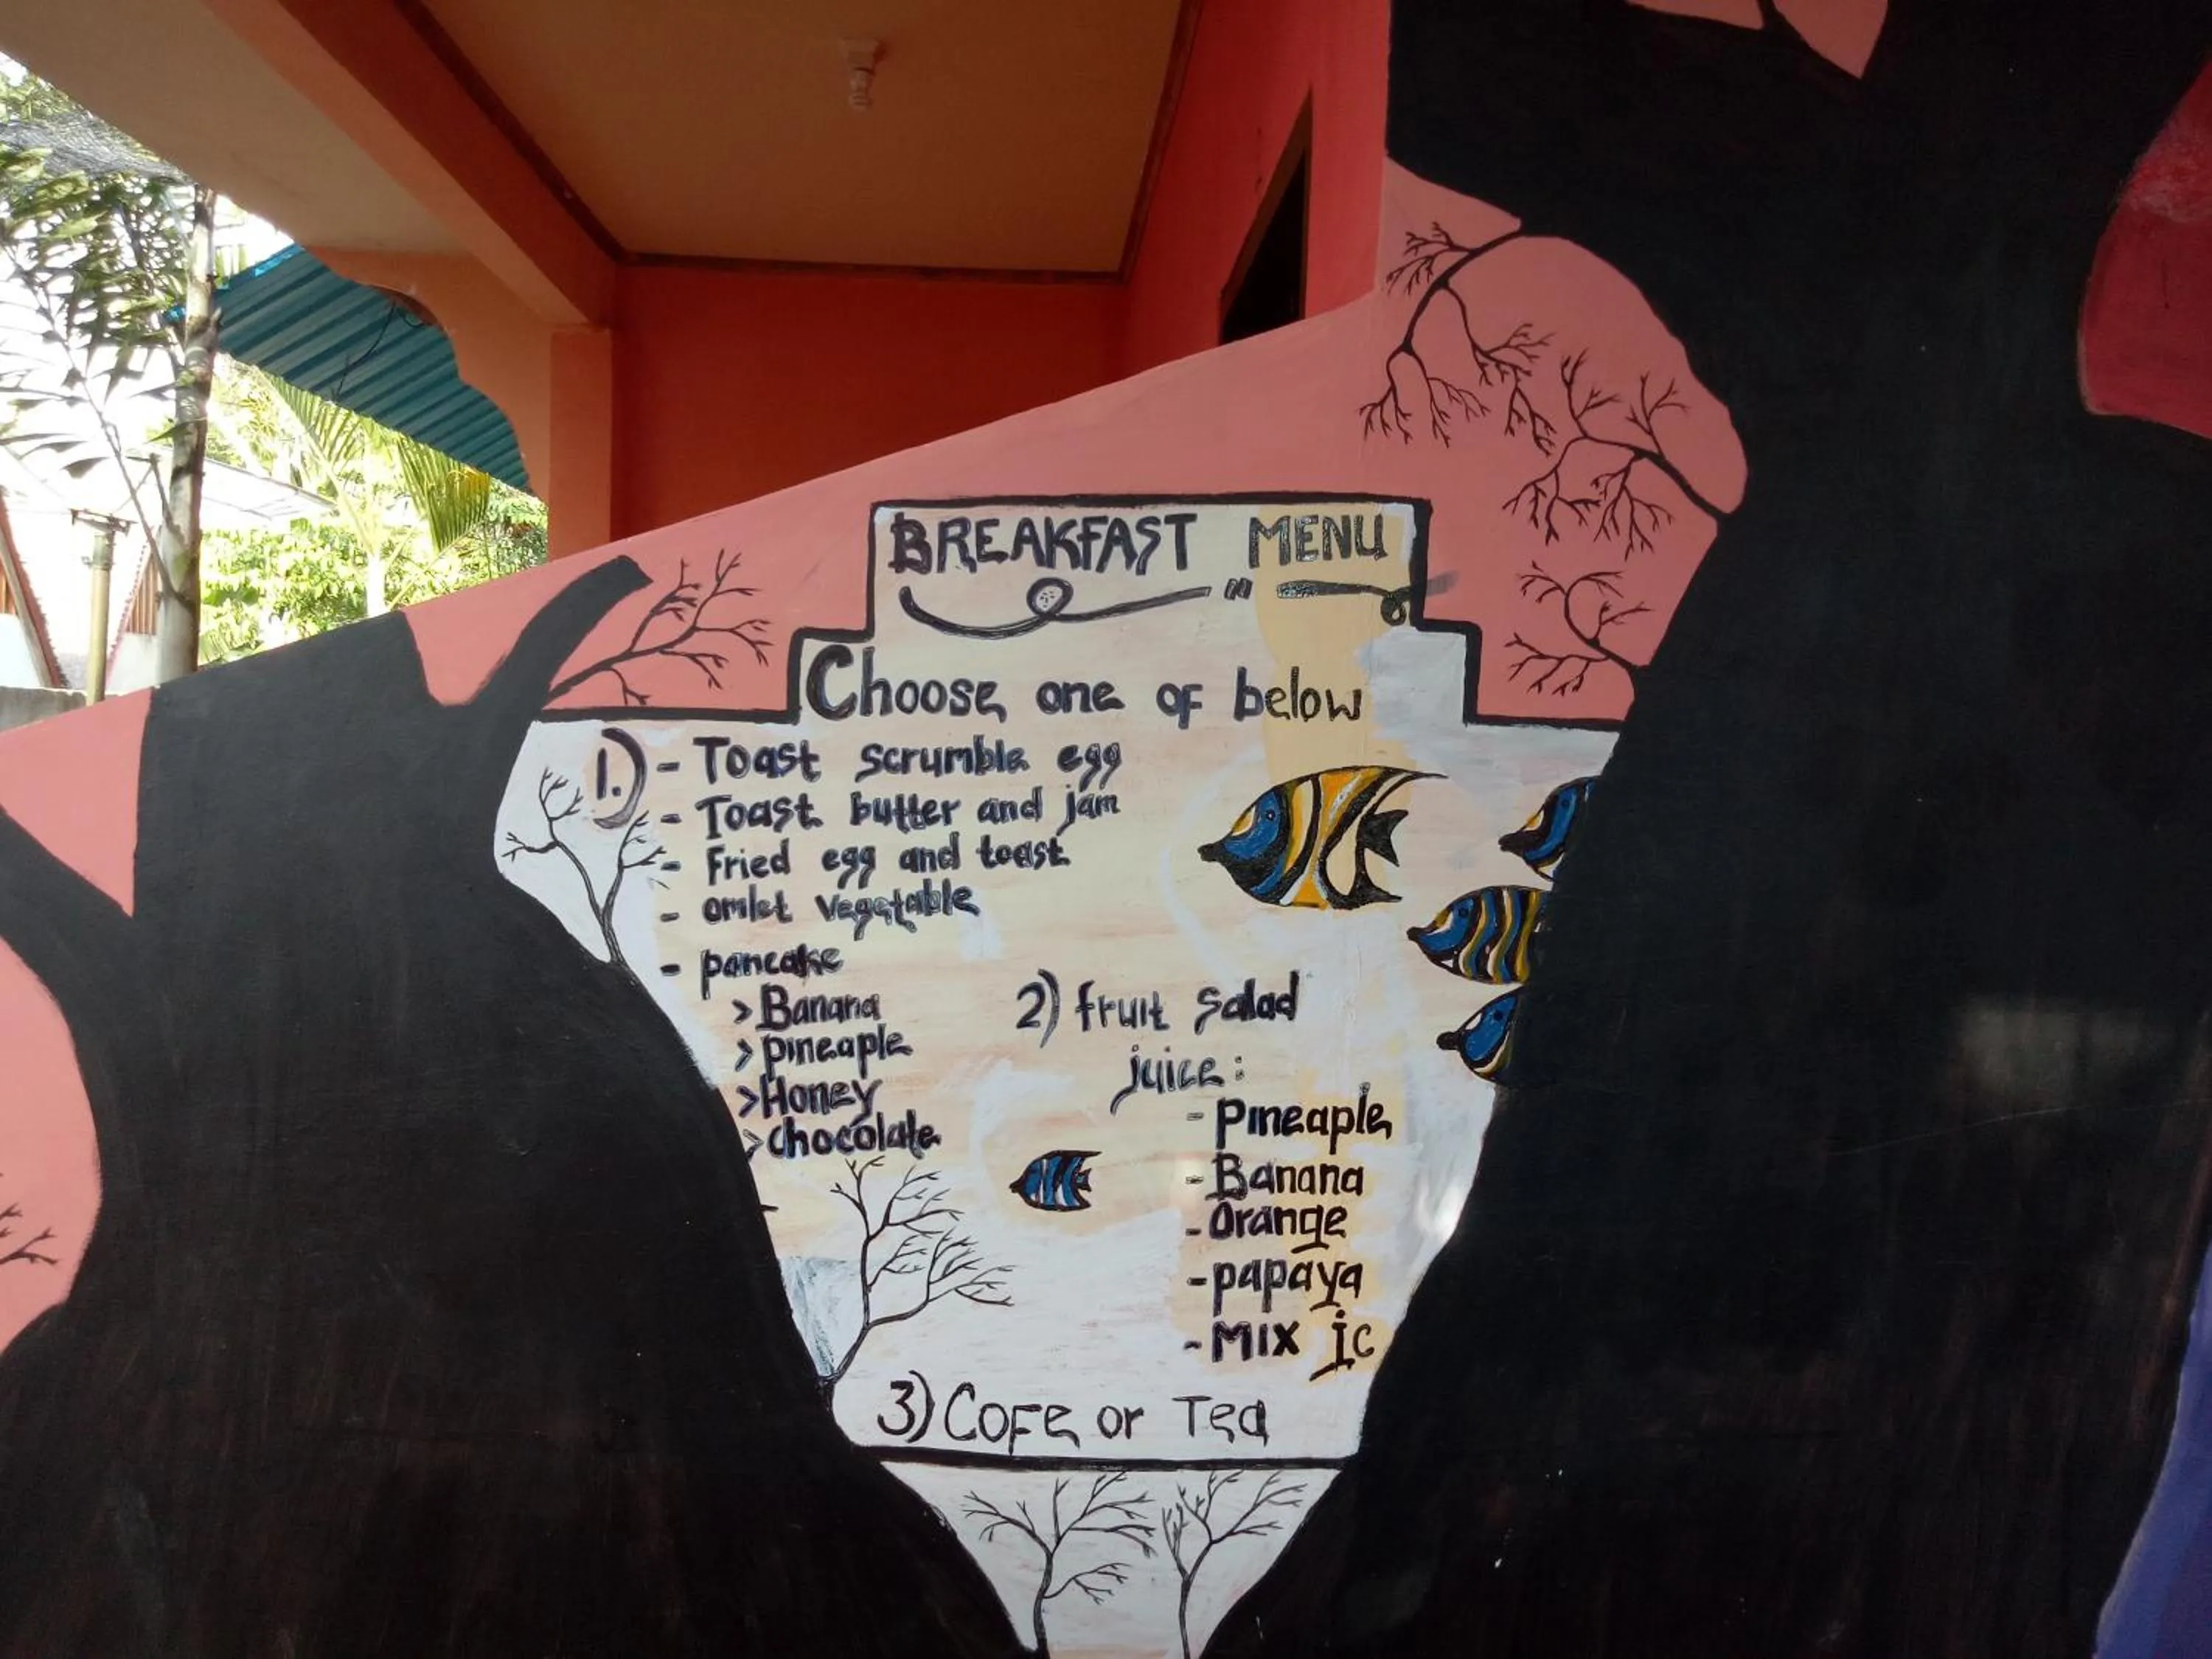 BREAKFAST MENU
Choose one of below
1.) - Toast scrumble egg
- Toast butter and jam
- Fried egg and toast
- omlet vegetable
- pancake
> Banana
> pineaple
> Honey
> chocolate
2) fruit salad
juice :
- Pineaple
- Banana
- Orange
- papaya
- MIX jc
3) COFE or Tea